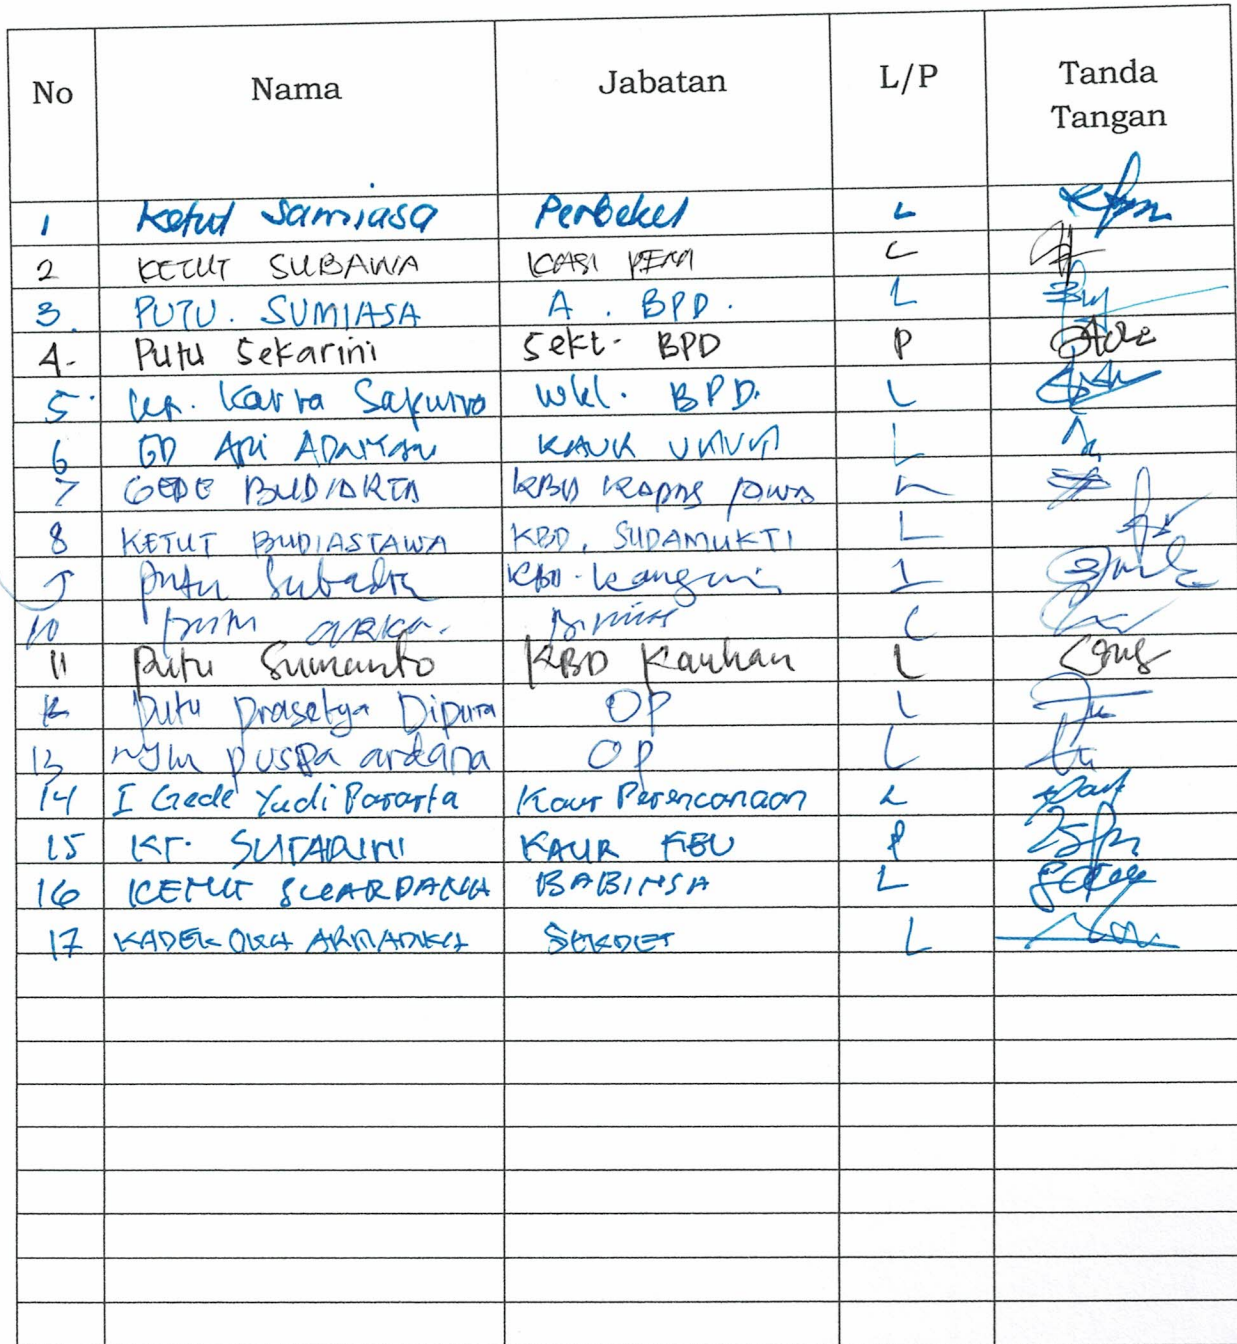 No Nama Jabatan L/P Tanda Tangan
1 Ketut Samiasa Perbekel L
2 KETUT SUBAWA KASI PEM L
3. PUTU. SUMIASA A. BPD. L
4- Putu Sekarini Sekt- BPD P
5. Karta wkl. BPD. L
6 GD ARI KAUR UMUM L
7 GEDE BUDIARTA KBD Kapas Jawa L
8 KETUT BUDIASTAWA KBD. SUDAMUKTI L
9 Putu Subadra KBD - Kangin L
10 Putu ARKA. L
11 Putu Sumanto KBD Kauhan L
12 Putu Prasetya Dipura OP L
13 nym puspa ardana OP L
14 I Gede Yudi Pararta Kaur Perencanaan L
15 KT. SUTARINI KAUR KEU P
16 KETUT SUARDANA BABINSA L
17 KADEK SEKDES L